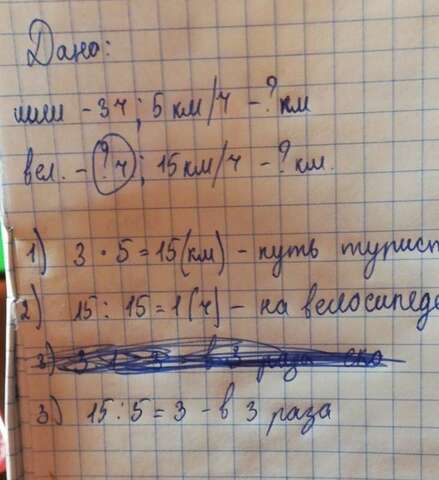 Дано:
шли - 3ч; 5 км/ч - ? км
вел. - ? ч; 15 км/ч - ? км.
1) 3 · 5 = 15 (км) - путь турист
2) 15 : 15 = 1 (ч) - на велосипеде
3) 15 : 5 = 3 - в 3 раза